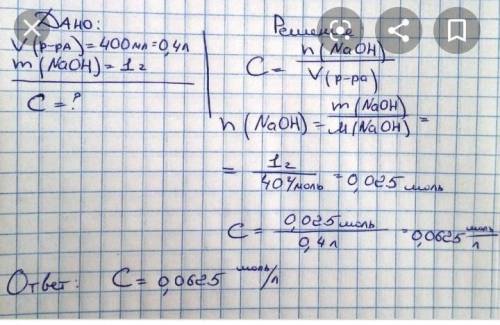 Дано:
V(р-ра)=400мл=0,4л
m(NaOH)=1г
C=?
Решение
C= n(NaOH)/V(р-ра)
n(NaOH)= m(NaOH)/M(NaOH) =
= 1г/40г/моль =0,025 моль
C= 0,025моль/0,4л =0,0625 моль/л
Ответ: C=0,0625 моль/л